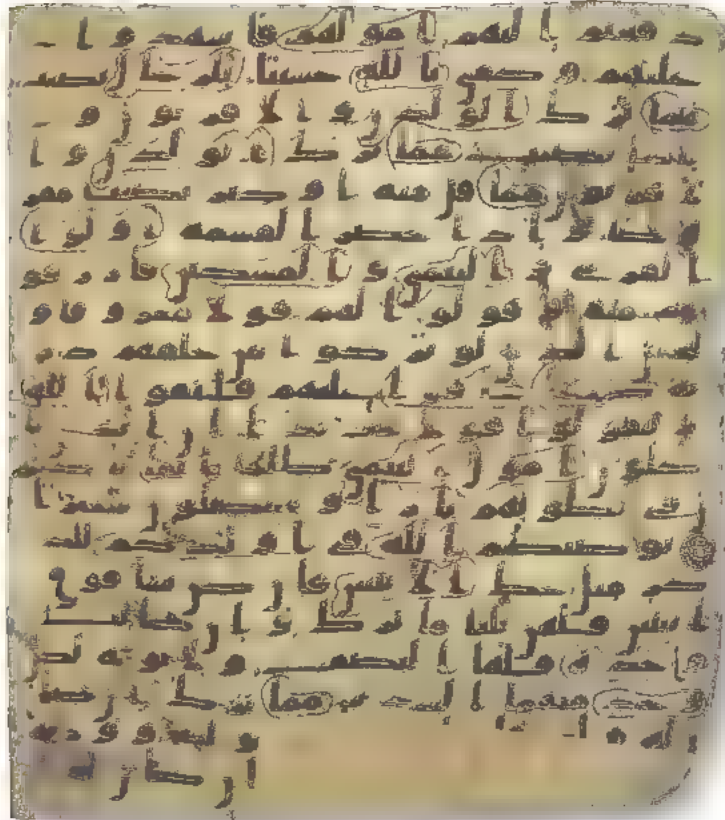 دفعتم اليهم امولهم فاشهدوا
عليهم وكفى بالله حسيبا للرجال نصيب
مما ترك الولدن والاقربون و
للنسا نصيب مما ترك الولدن وا
لاقربون مما قل منه او كثر نصيبا مفر
وضا واذا حضر القسمة اولوا
القربى واليتمى والمسكين فارزقو
هم منه وقولوا لهم قولا معروفا و
ليخش الذين لو تركوا من خلفهم ذر
ية ضعفا خافوا عليهم فليتقوا الله
وليقولوا قولا سديدا ان الذين يا
كلون امول اليتمى ظلما انما ياكلو
ن في بطونهم نارا وسيصلون سعيرا
يوصيكم الله في اولدكم للذ
كر مثل حظ الانثيين فان كن نسا فوق
اثنتين فلهن ثلثا ما ترك وان كانت
وحدة فلها النصف ولابويه لكل
وحد منهما السدس مما ترك ان كان